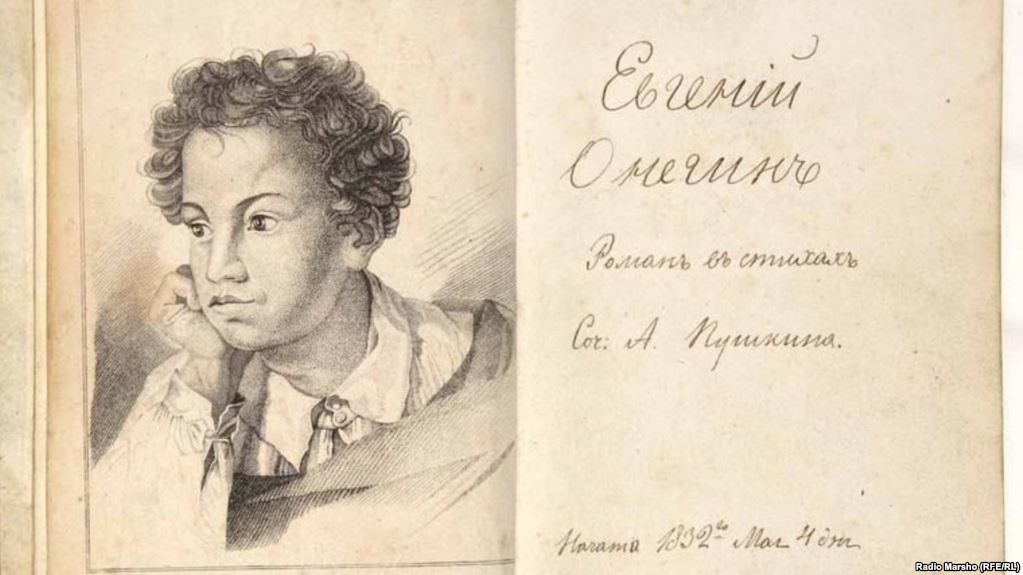 Евгеній
Онегинъ
Романъ въ стихахъ
Соч: А. Пушкина.
Начата 1832го Мая 4 дня
Radio Marsho (RFE/RL)